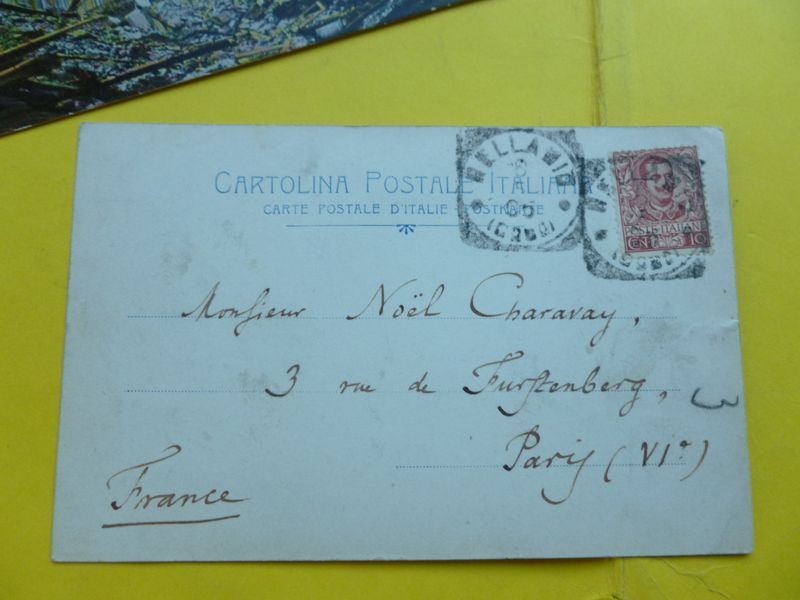 CARTOLINA POSTALE ITALIANA
CARTE POSTALE D'ITALIE
BELLAGIO
(COMO)
POSTE ITALIANE
10
Monsieur Noël Charavay,
3 rue de Furstenberg,
3
Paris (VIe)
France